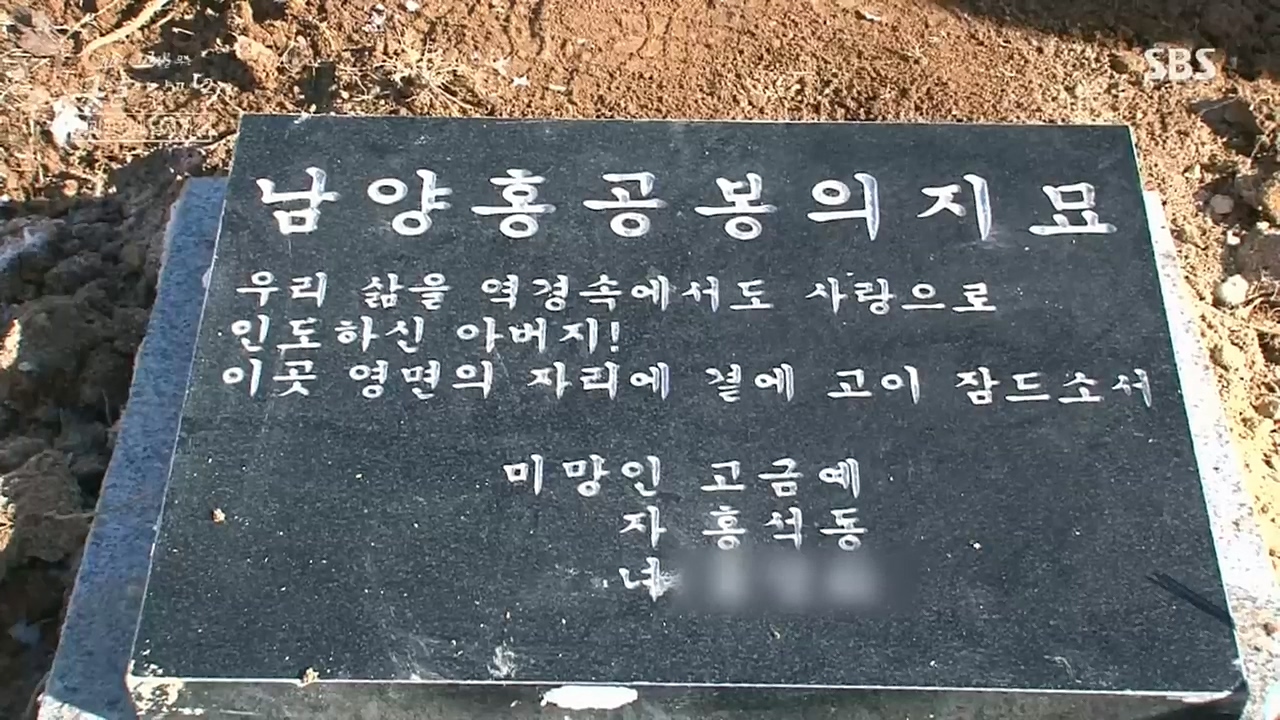 SBS
남양홍공봉의지묘
우리 삶을 역경속에서도 사랑으로
인도하신 아버지!
이곳 영면의 자리에 곁에 고이 잠드소서
미망인 고금예
자 홍석동
녀